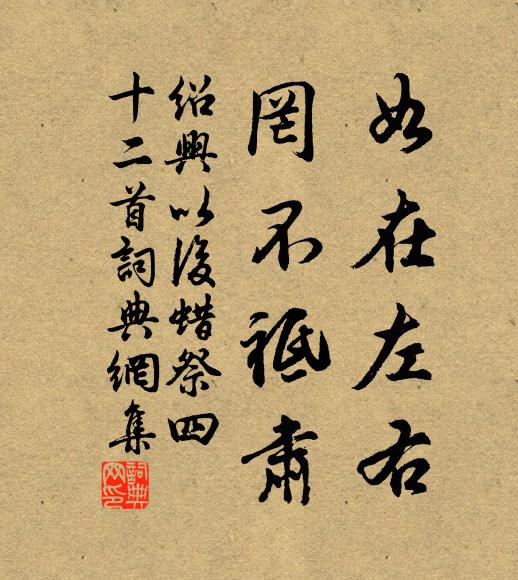 如在左右
罔不祗肅
紹興以後蜡祭四
十二首詞典網集
詞典
网印